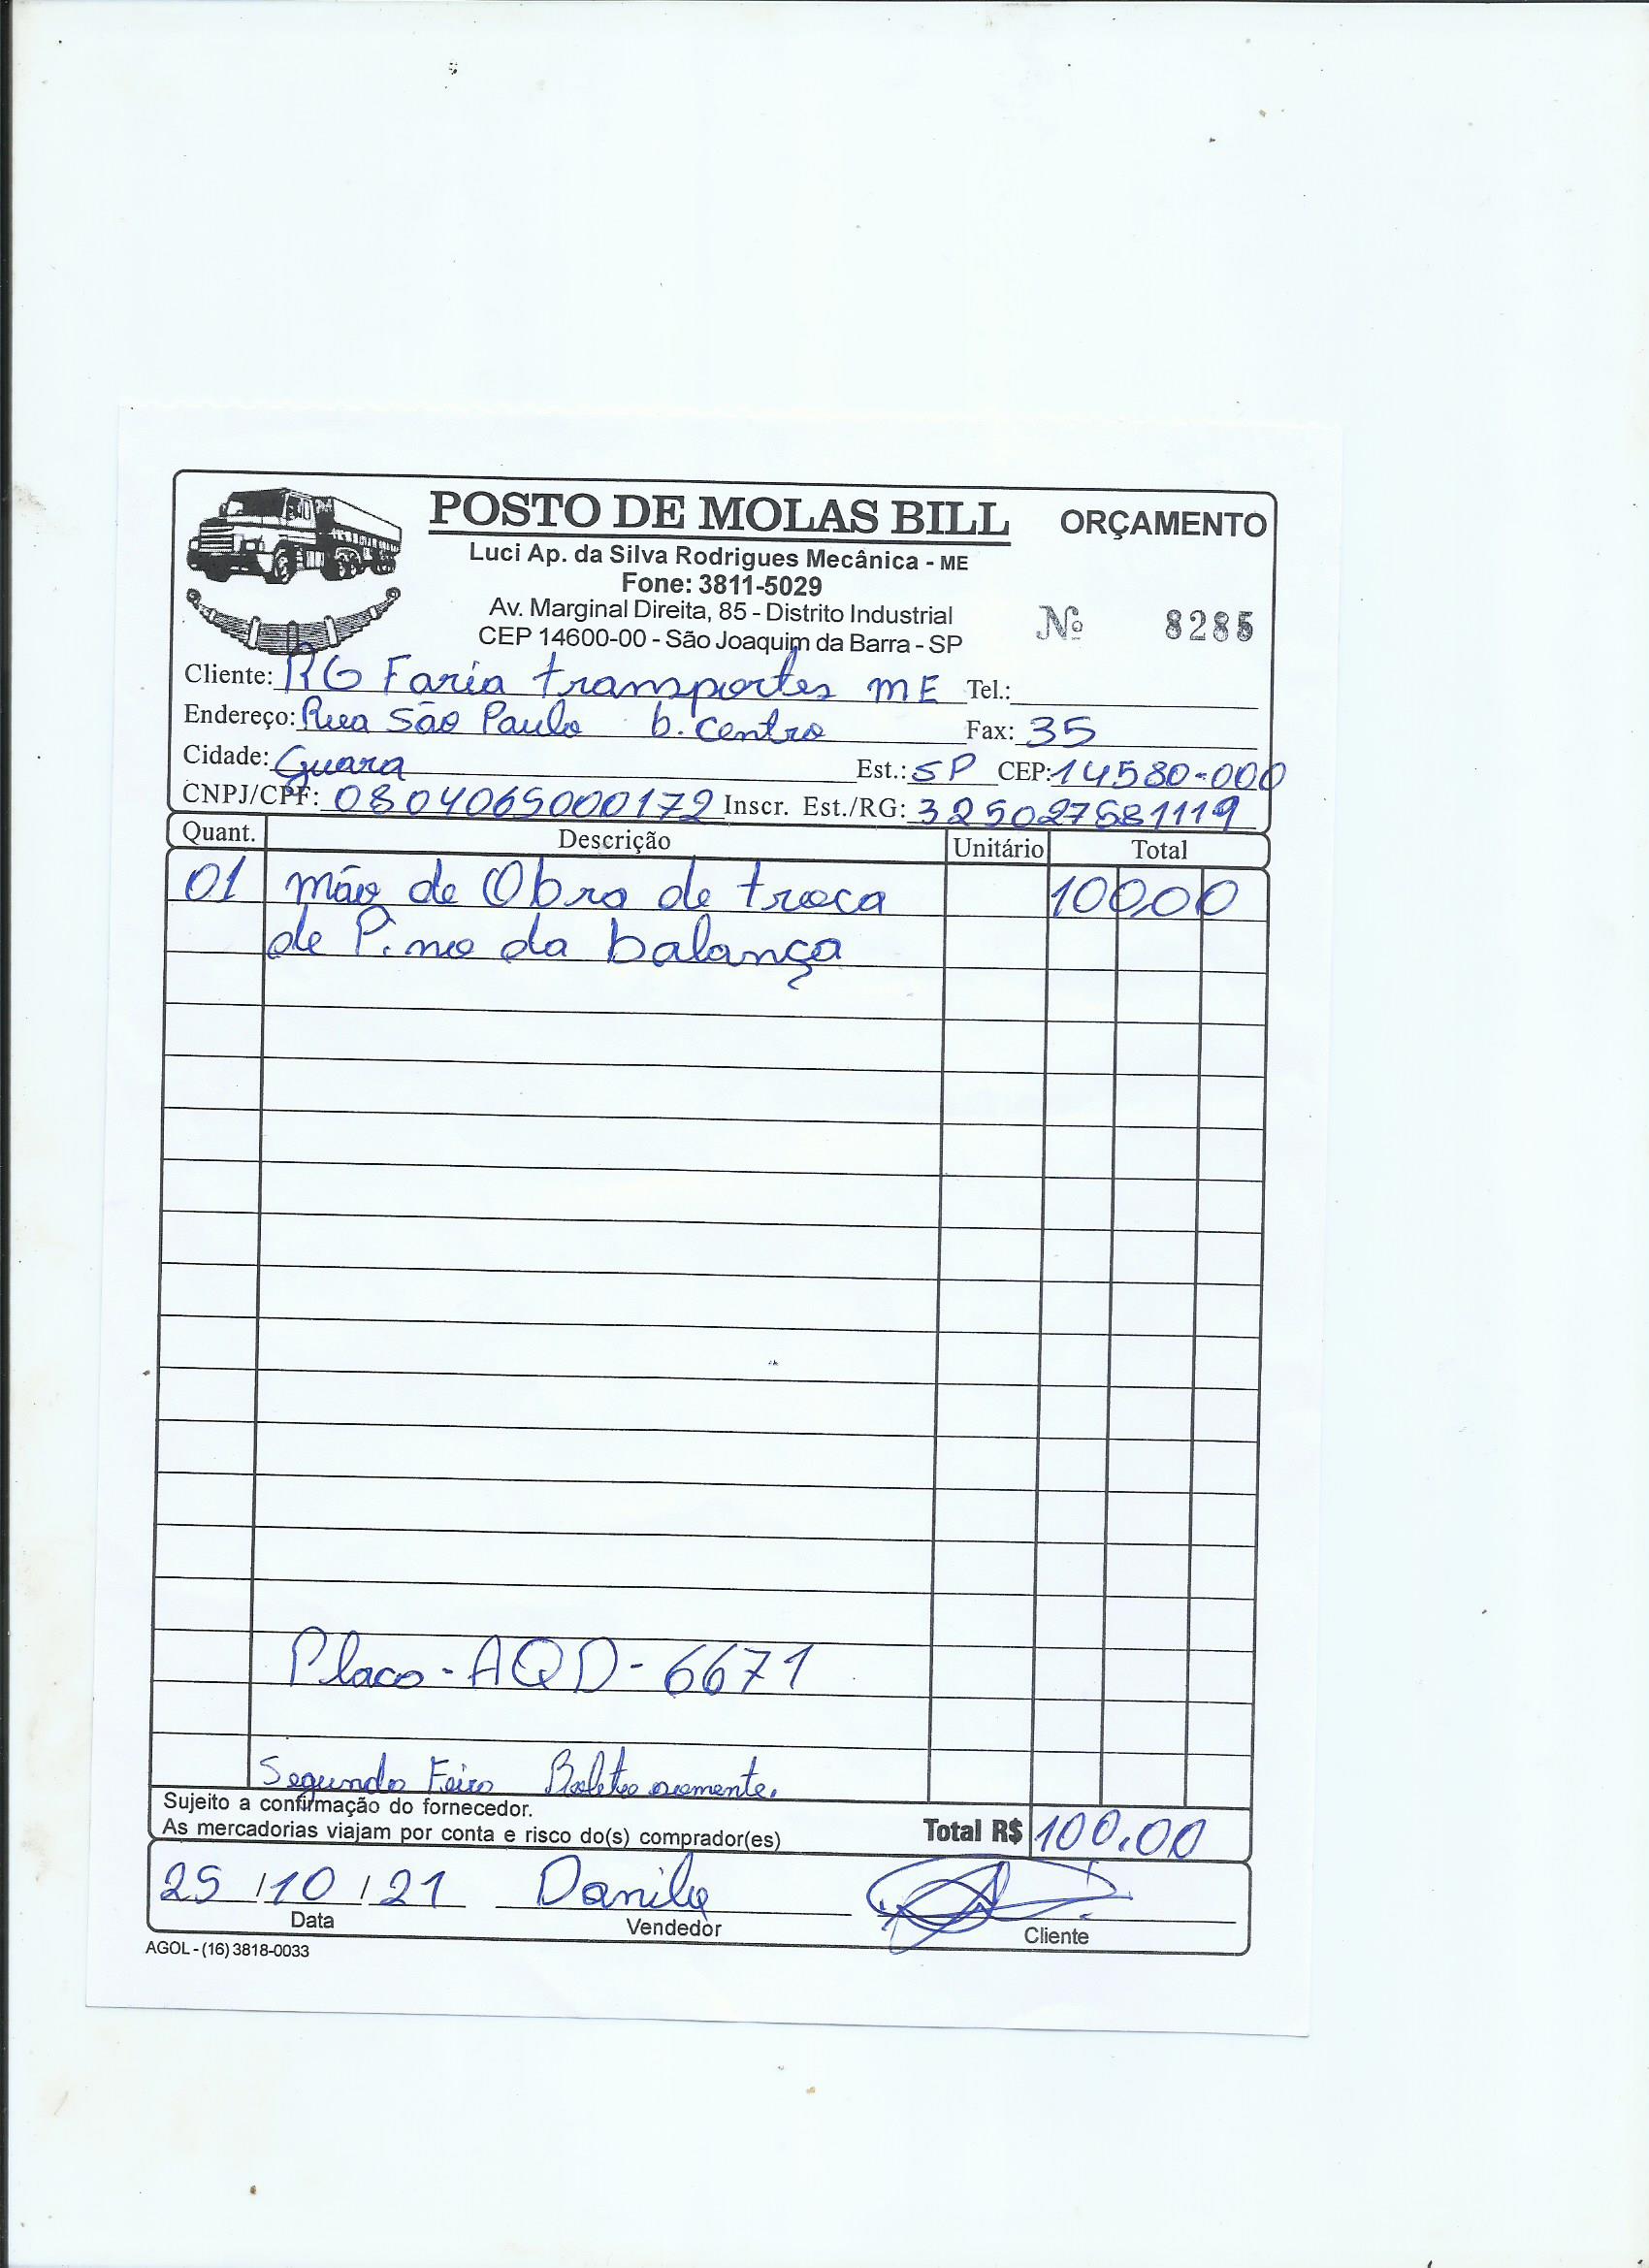 POSTO DE MOLAS BILL ORÇAMENTO
Luci Ap. da Silva Rodrigues Mecânica - ME
Fone: 3811-5029
Av. Marginal Direita, 85 - Distrito Industrial
CEP 14600-00 - São Joaquim da Barra - SP
Nº 8285
Cliente: RG Faria transportes ME Tel.:
Endereço: Rua São Paulo b. centro Fax: 35
Cidade: Guara Est.: SP CEP: 14580-000
CNPJ/CPF: 0804065000172 Inscr. Est./RG: 325027581119
Quant. Descrição Unitário Total
01 mão de Obra de troca 100,00
de Pino da balança
Placa - AQD - 6671
Segunda Feira Boleto somente.
Sujeito a confirmação do fornecedor.
As mercadorias viajam por conta e risco do(s) comprador(es) Total R$ 100,00
25 / 10 / 21 Danilo
Data Vendedor Cliente
AGOL - (16) 3818-0033